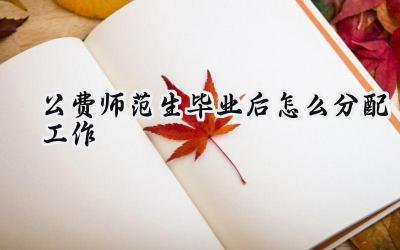 公费师范生毕业后怎么分配
工作